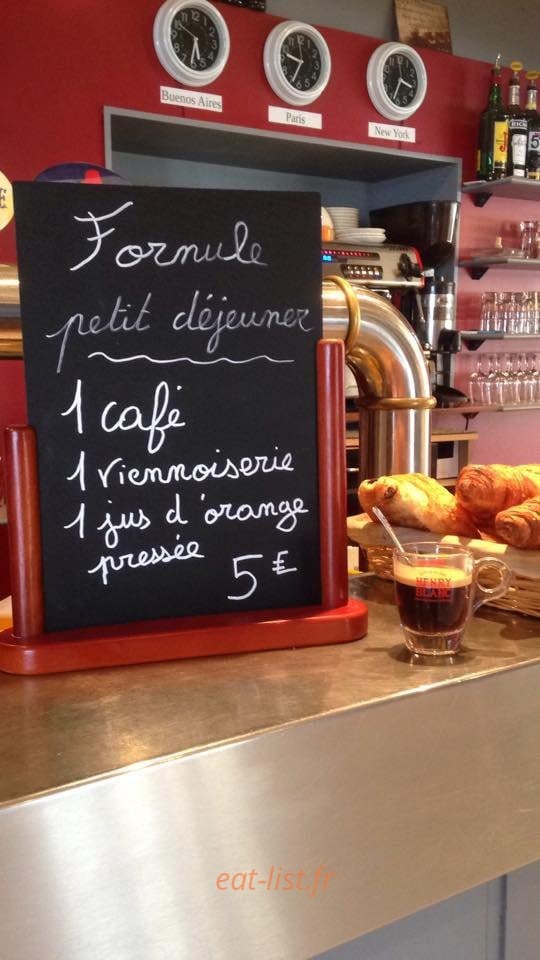 Buenos Aires
Paris
New York
Formule
petit déjeuner
1 café
1 viennoiserie
1 jus d'orange
pressée
5 €
HENRY
BLANC
eat-list.fr